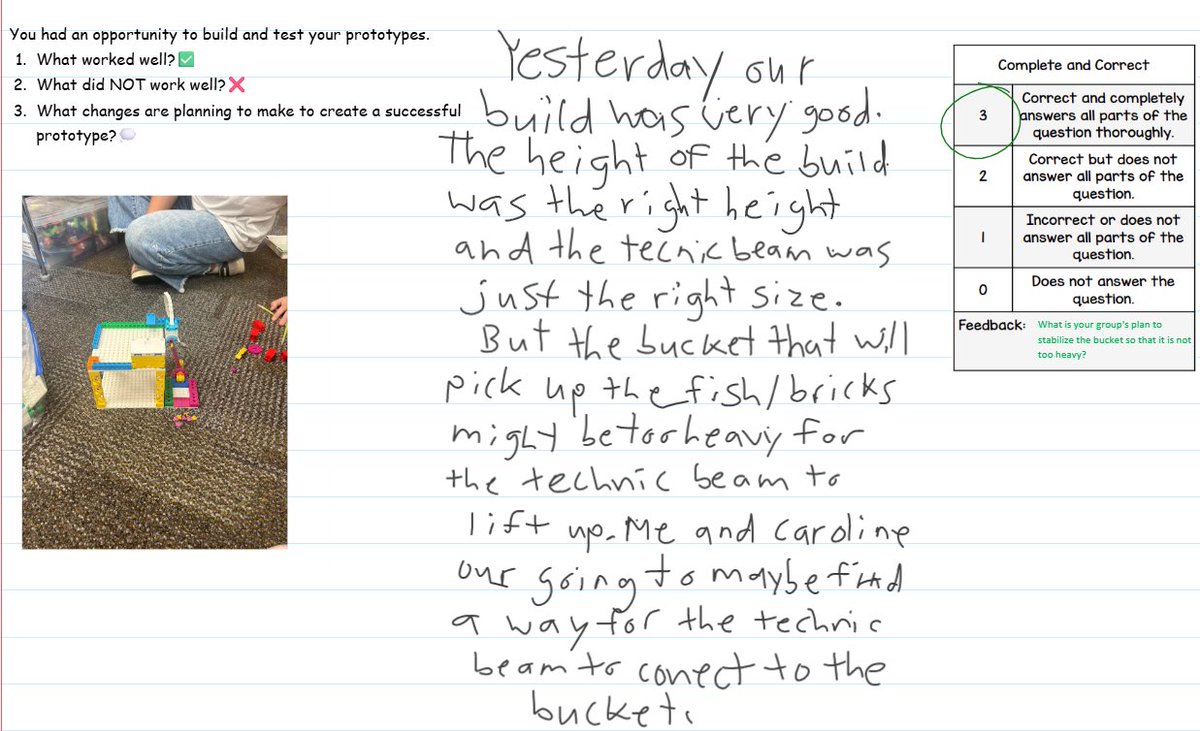 You had an opportunity to build and test your prototypes.
1. What worked well? ✅
2. What did NOT work well? ❌
3. What changes are planning to make to create a successful
prototype? 💭
Yesterday our
build was very good.
The height of the build
was the right height
and the tecnic beam was
just the right size.
But the bucket that will
pick up the fish/bricks
might be too heavy for
the technic beam to
lift up. Me and Caroline
our going to maybe find
a way for the technic
beam to conect to the
bucket.
Complete and Correct
3
Correct and completely
answers all parts of the
question thoroughly.
2
Correct but does not
answer all parts of the
question.
1
Incorrect or does not
answer all parts of the
question.
0
Does not answer the
question.
Feedback: What is your group's plan to
stabilize the bucket so that it is not
too heavy?